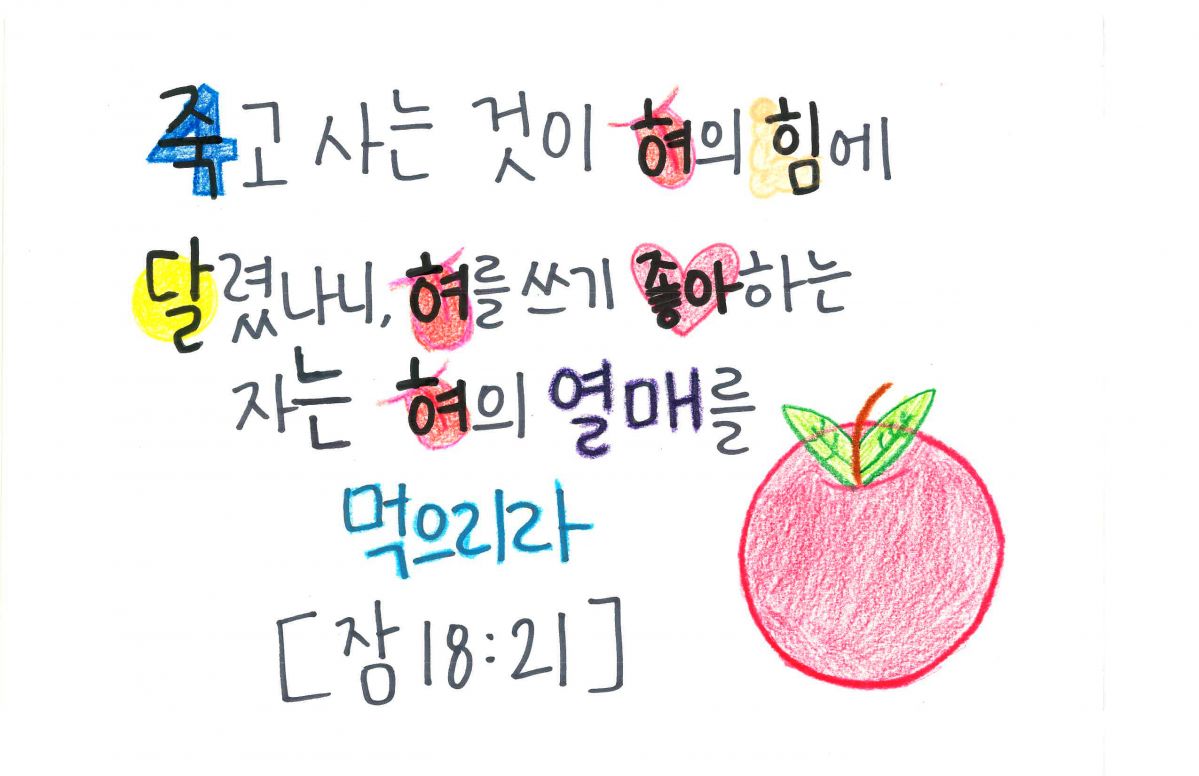 죽고 사는 것이 혀의 힘에
달렸나니, 혀를 쓰기 좋아하는
자는 혀의 열매를
먹으리라
[잠 18:21]